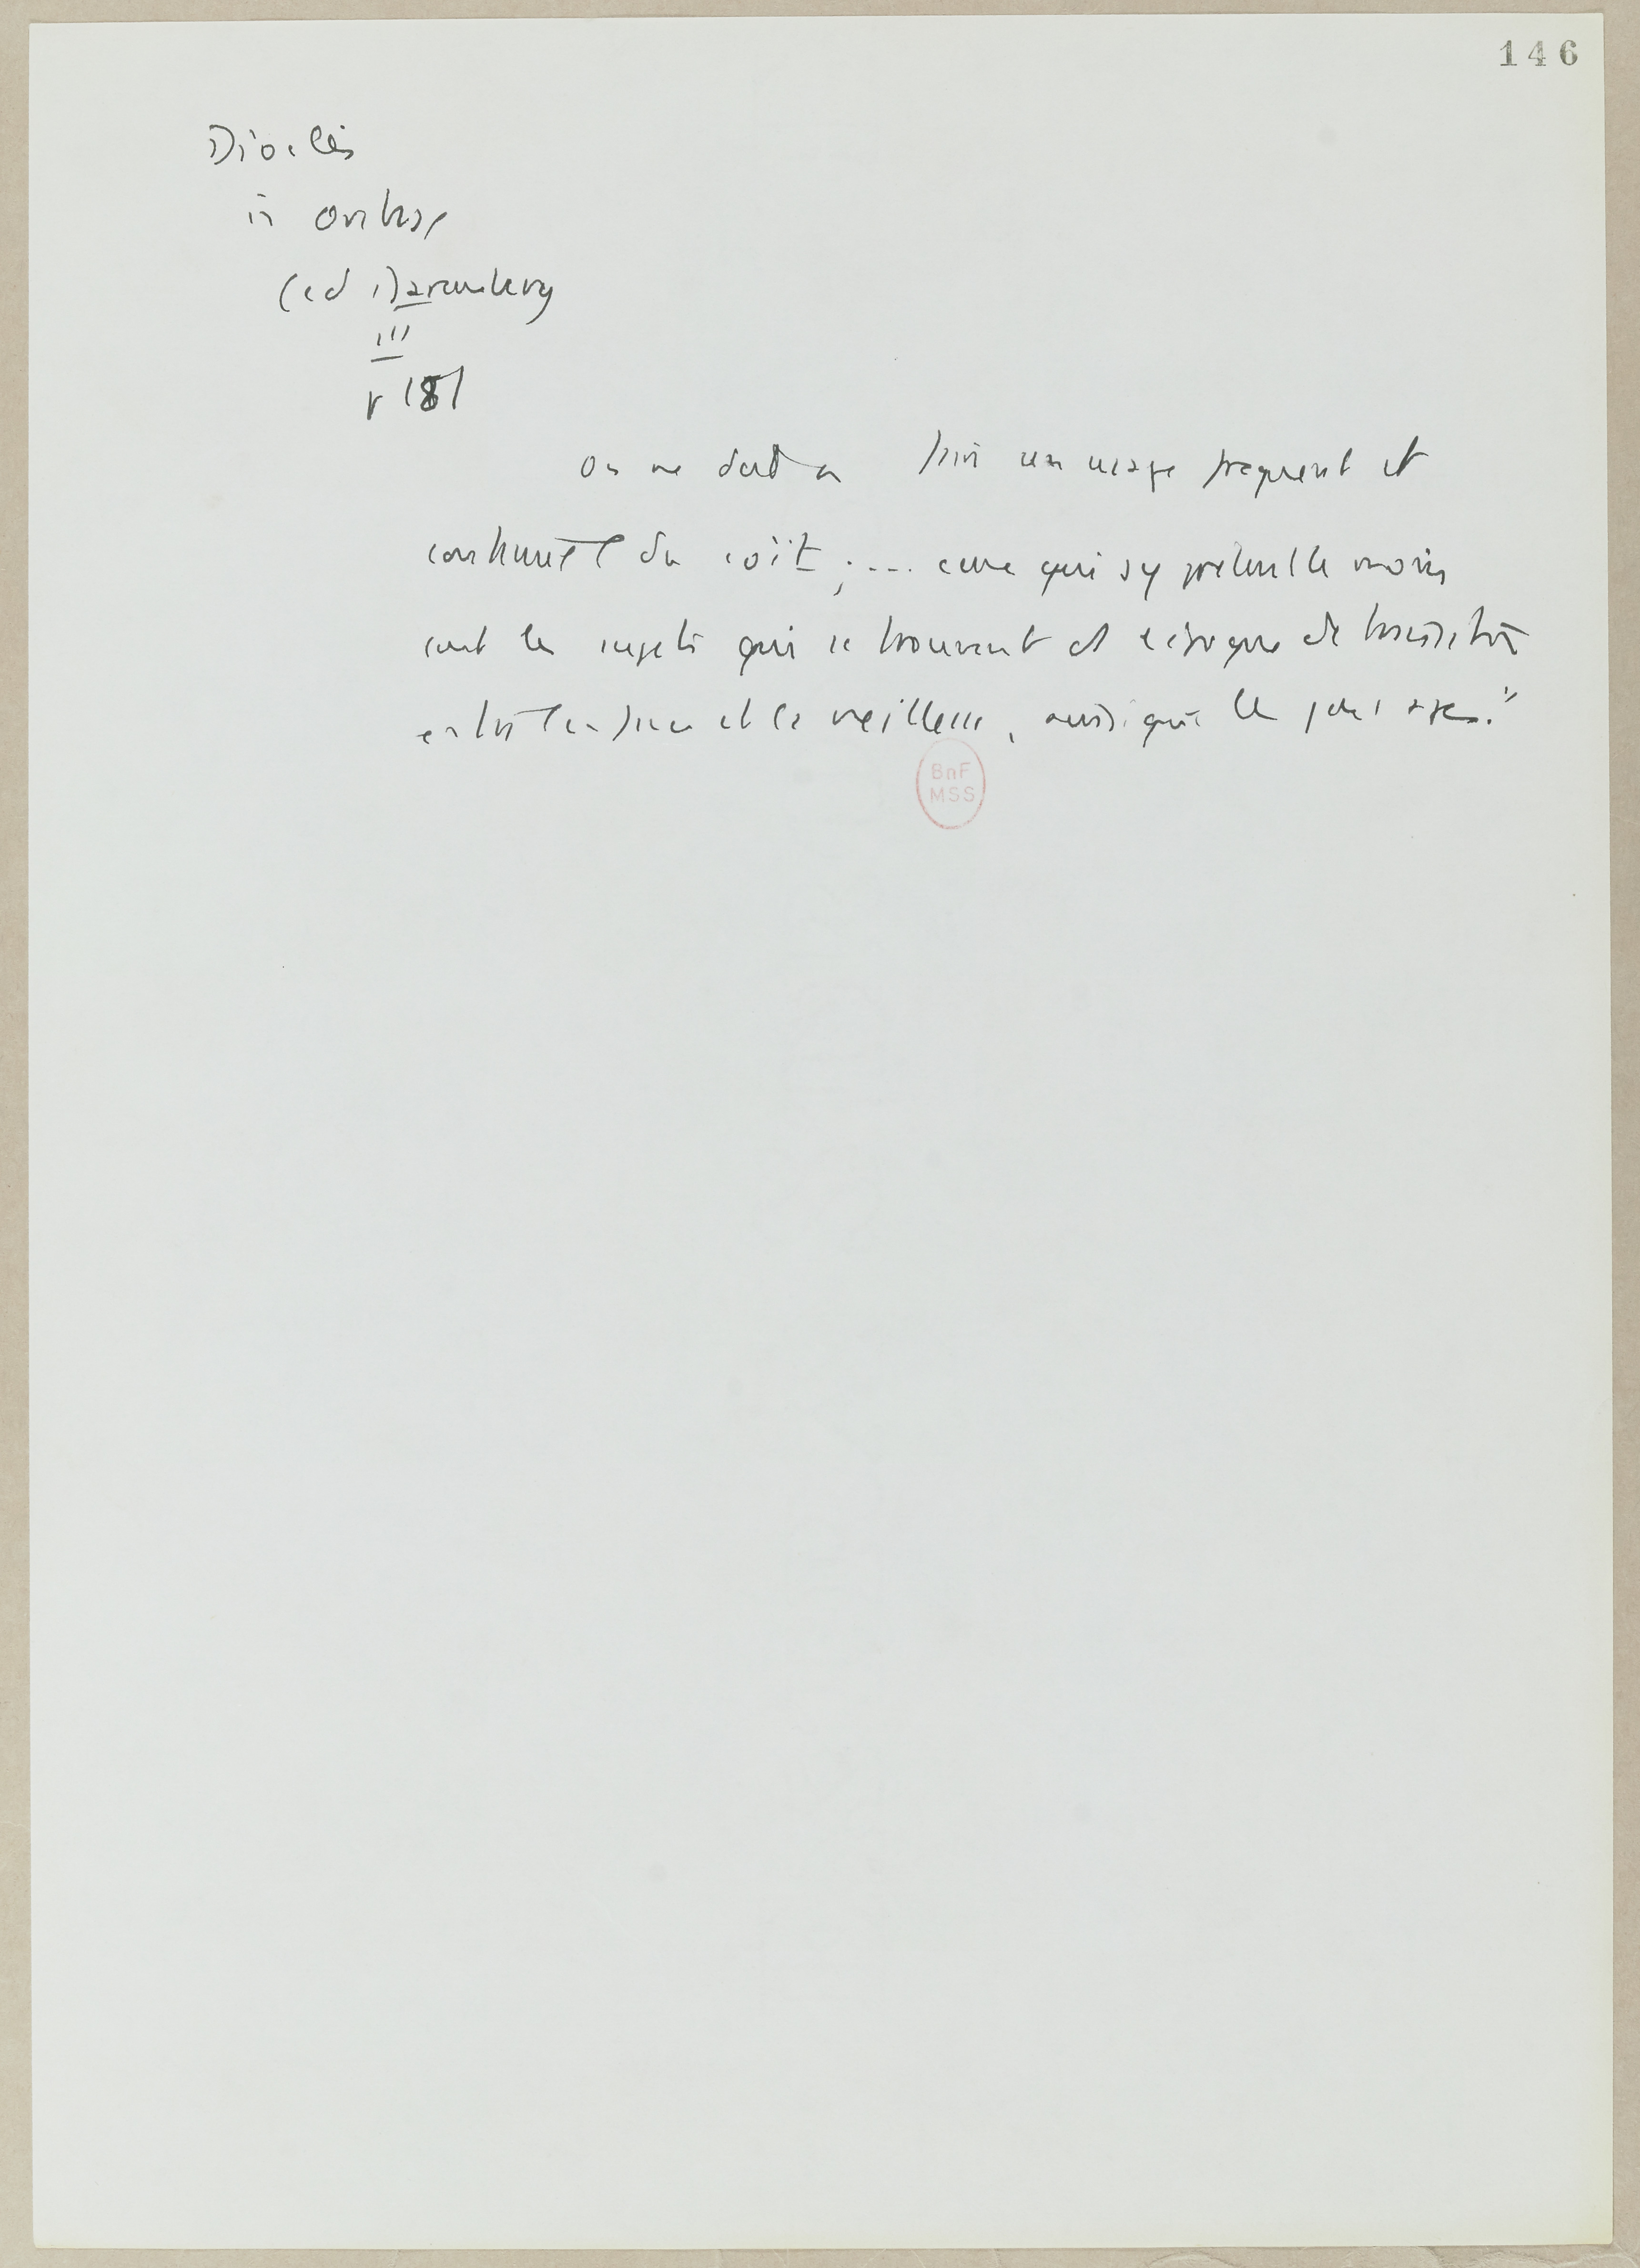 146
Dioclès
in Oribase
(ed Daremberg
III
p 181
on ne doit pas faire un usage fréquent et
continuel du coït ; .... ceux qui s'y prêtent le moins
sont les sujets qui se trouvent à l'époque de transition
entre l'enfance et la vieillesse, ainsi que les gens âgés."
BnF
MSS